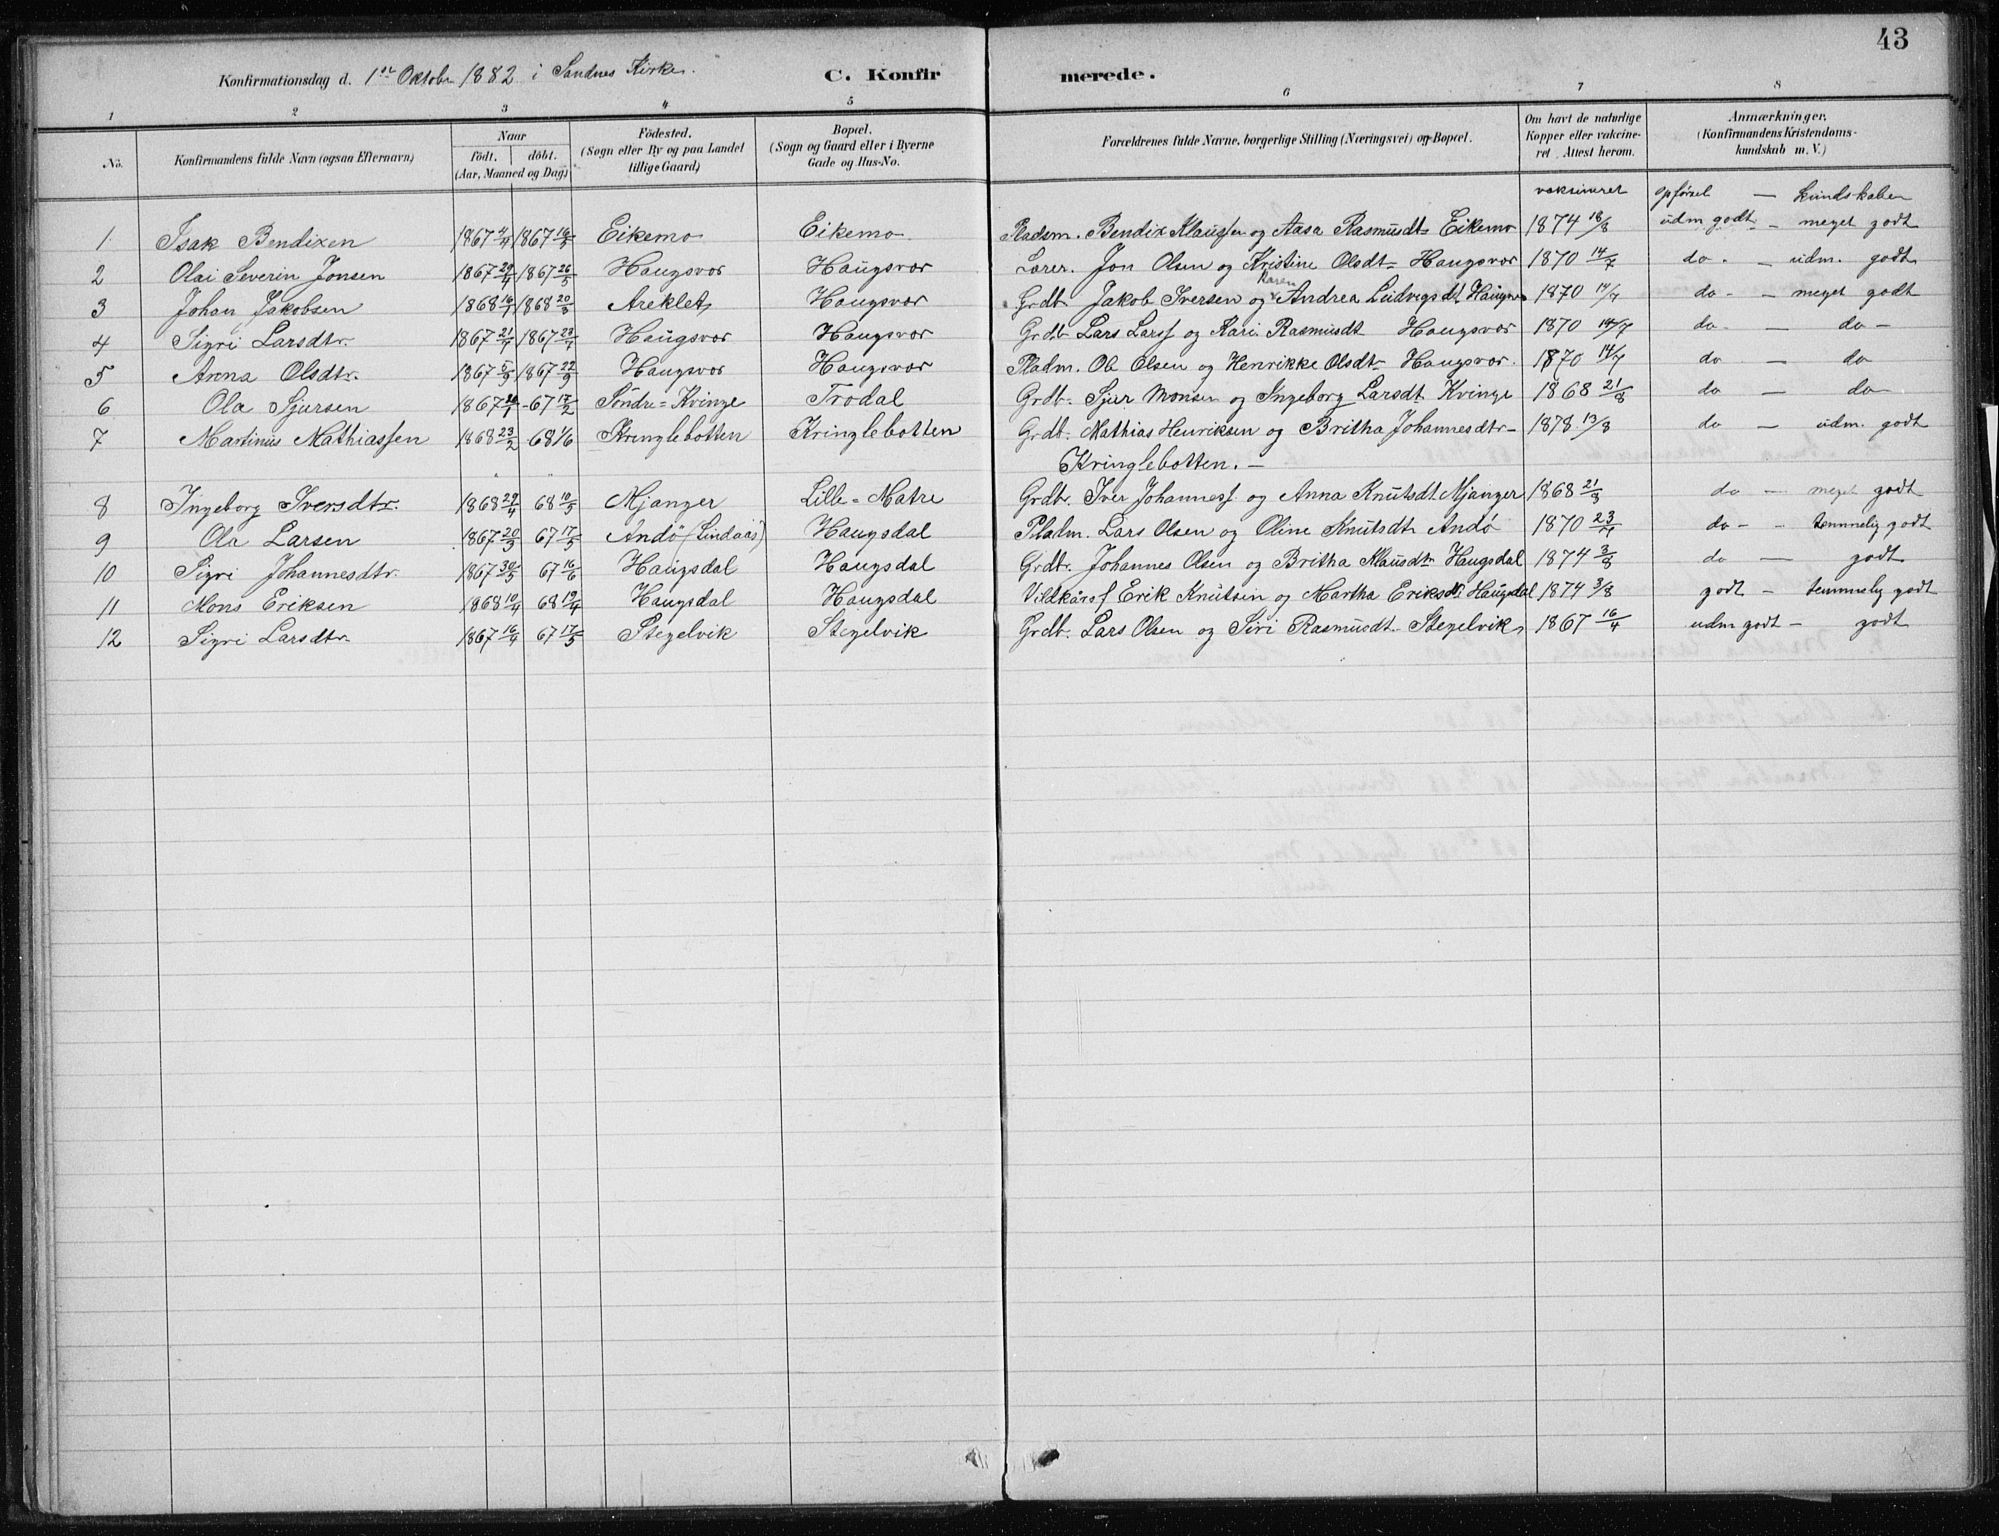 43
Konfirmationsdag d. 1ste Oktober 1882 i Sandnes Kirke. C. Konfirmerede.
1 2 3 4 5 6 7 8
No. Konfirmandens fulde Navn (ogsaa Efternavn) Naar födt. döbt. (Aar, Maaned og Dag) Födested. (Sogn eller By og paa Landet tillige Gaard) Bopæl. (Sogn og Gaard eller i Byerne Gade og Hus-No. Forældrenes fulde Navne, borgerlige Stilling (Næringsvei) og Bopæl. Om havt de naturlige Kopper eller vakcineret. Attest herom. Anmærkninger. (Konfirmandens Kristendomskundskab m. V.)
vaksineret opførsel — kundskaber
1 Isak Bendixen 1867 4/4 1867 16/5 Eikemo Eikemo Pladsm. Bendix Klaussen og Aasa Rasmusdt Eikemo 1874 18/8 udm. godt — meget godt
2 Olai Severin Jonsen 1867 29/4 1867 26/5 Haugsvor Haugsvor Lærer. Jon Olsen og Kristine Olsdt Haugsvor 1870 14/7 do — udm. godt
3 Johan Jakobsen 1868 16/1 1868 20/3 Areklet Haugsvor Grdb. Jakob Iversen og Karen Andrea Ludvigsdt Haugsvor 1870 14/7 do — meget godt
4 Sigri Larsdtr. 1867 21/7 1867 23/7 Haugsvor Haugsvor Grdb Lars Larss og Kari Rasmusdt Haugsvor 1870 14/7 do — do —
5 Anna Olsdtr. 1867 5/9 1867 22/9 Haugsvor Haugsvor Pladm. Ole Olsen og Henrikke Olsdt Haugsvor. 1870 14/7 do — do
6 Ola Sjursen 1867 20/1 -67 17/2 Söndre=Kvinge Trodal Grdb. Sjur Monsen og Ingeborg Larsdt Kvinge 1868 21/8 do — do
7 Martinus Mathiassen 1868 23/2 -68 1/6 Kringlebotten Kringlebotten Grdb. Mathias Henriksen og Britha Johannesdtr— 1878 13/8 do — udm. godt
Kringlebotten. —
8 Ingeborg Iversdtr. 1868 29/4 68 10/5 Mjanger Lille=Matre Grdb. Iver Johanness og Anna Knutsdt Mjanger 1868 21/8 do — meget godt
9 Ola Larsen 1867 20/3 67 17/5 Andö (Lindaas) Haugsdal Pladm. Lars Olsen og Oline Knutsdt Andö 1870 23/7 do — temmelig godt
10 Sigri Johannesdtr. 1867 30/5 67 16/6 Haugsdal Haugsdal Grdb. Johannes Olsen og Britha Klausdt Haugsdal 1874 3/8 do — godt
11 Mons Eriksen 1868 10/4 68 19/4 Haugsdal Haugsdal Erik Knutsen og Martha Eriksdt Haugsdal 1874 3/8 godt — temmelig godt
12 Sigri Larsdtr. 1867 16/4 67 17/5 Stegelvik Stegelvik Grdb. Lars Olsen og Siri Rasmusdt Stegelvik 1867 16/4 udm godt — godt